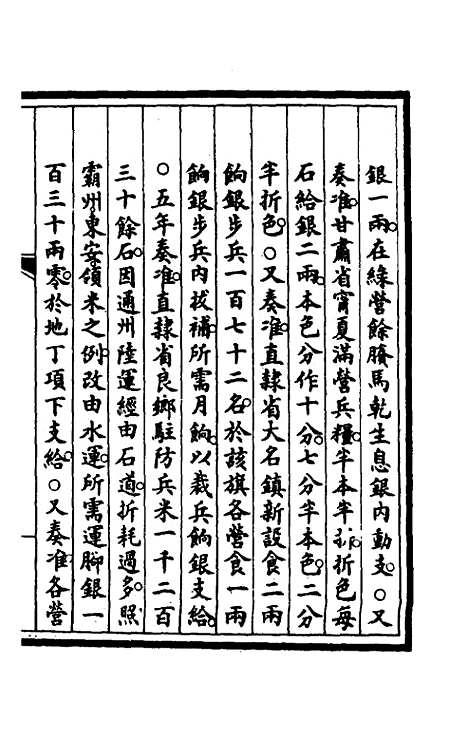 銀一兩。在綠營餘賸馬乾生息銀內動支。○又
奏准。甘肅省甯夏滿營兵糧。半本半折。折色每
石給銀二兩。本色分作十分。七分半本色。二分
半折色。○又奏准。直隸省大名鎮新設食二兩
餉銀步兵一百七十二名。於該旗各營食一兩
餉銀步兵內拔補。所需月餉。以裁兵餉銀支給。
○五年奏准。直隸省良鄉駐防兵米一千二百
三十餘石。因通州陸運經由石道。折耗過多。照
霸州東安領米之例。改由水運。所需運腳銀一
百三十兩零。於地丁項下支給。○又奏准。各營